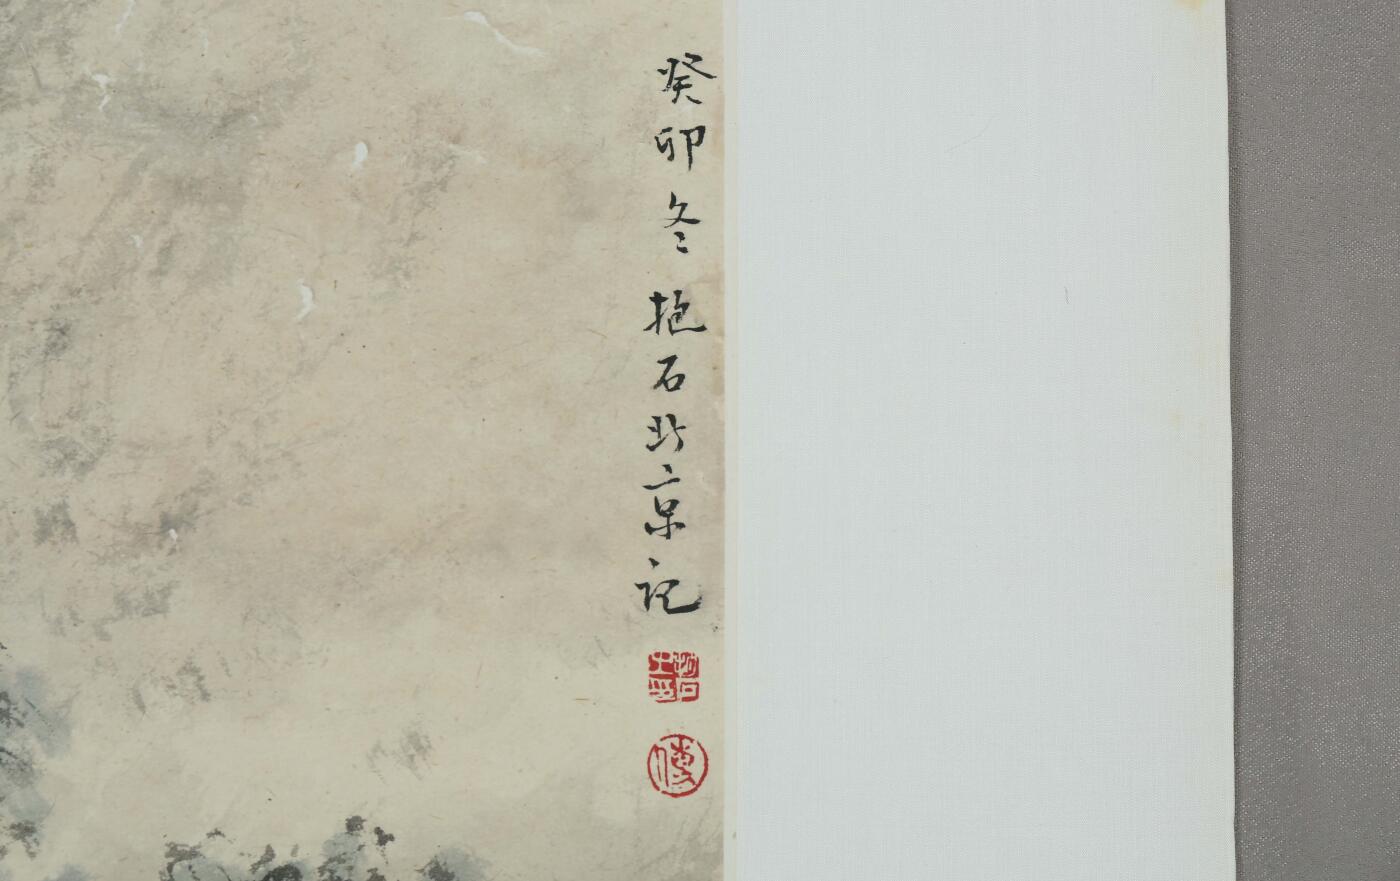 癸卯冬抱石北京记
傅